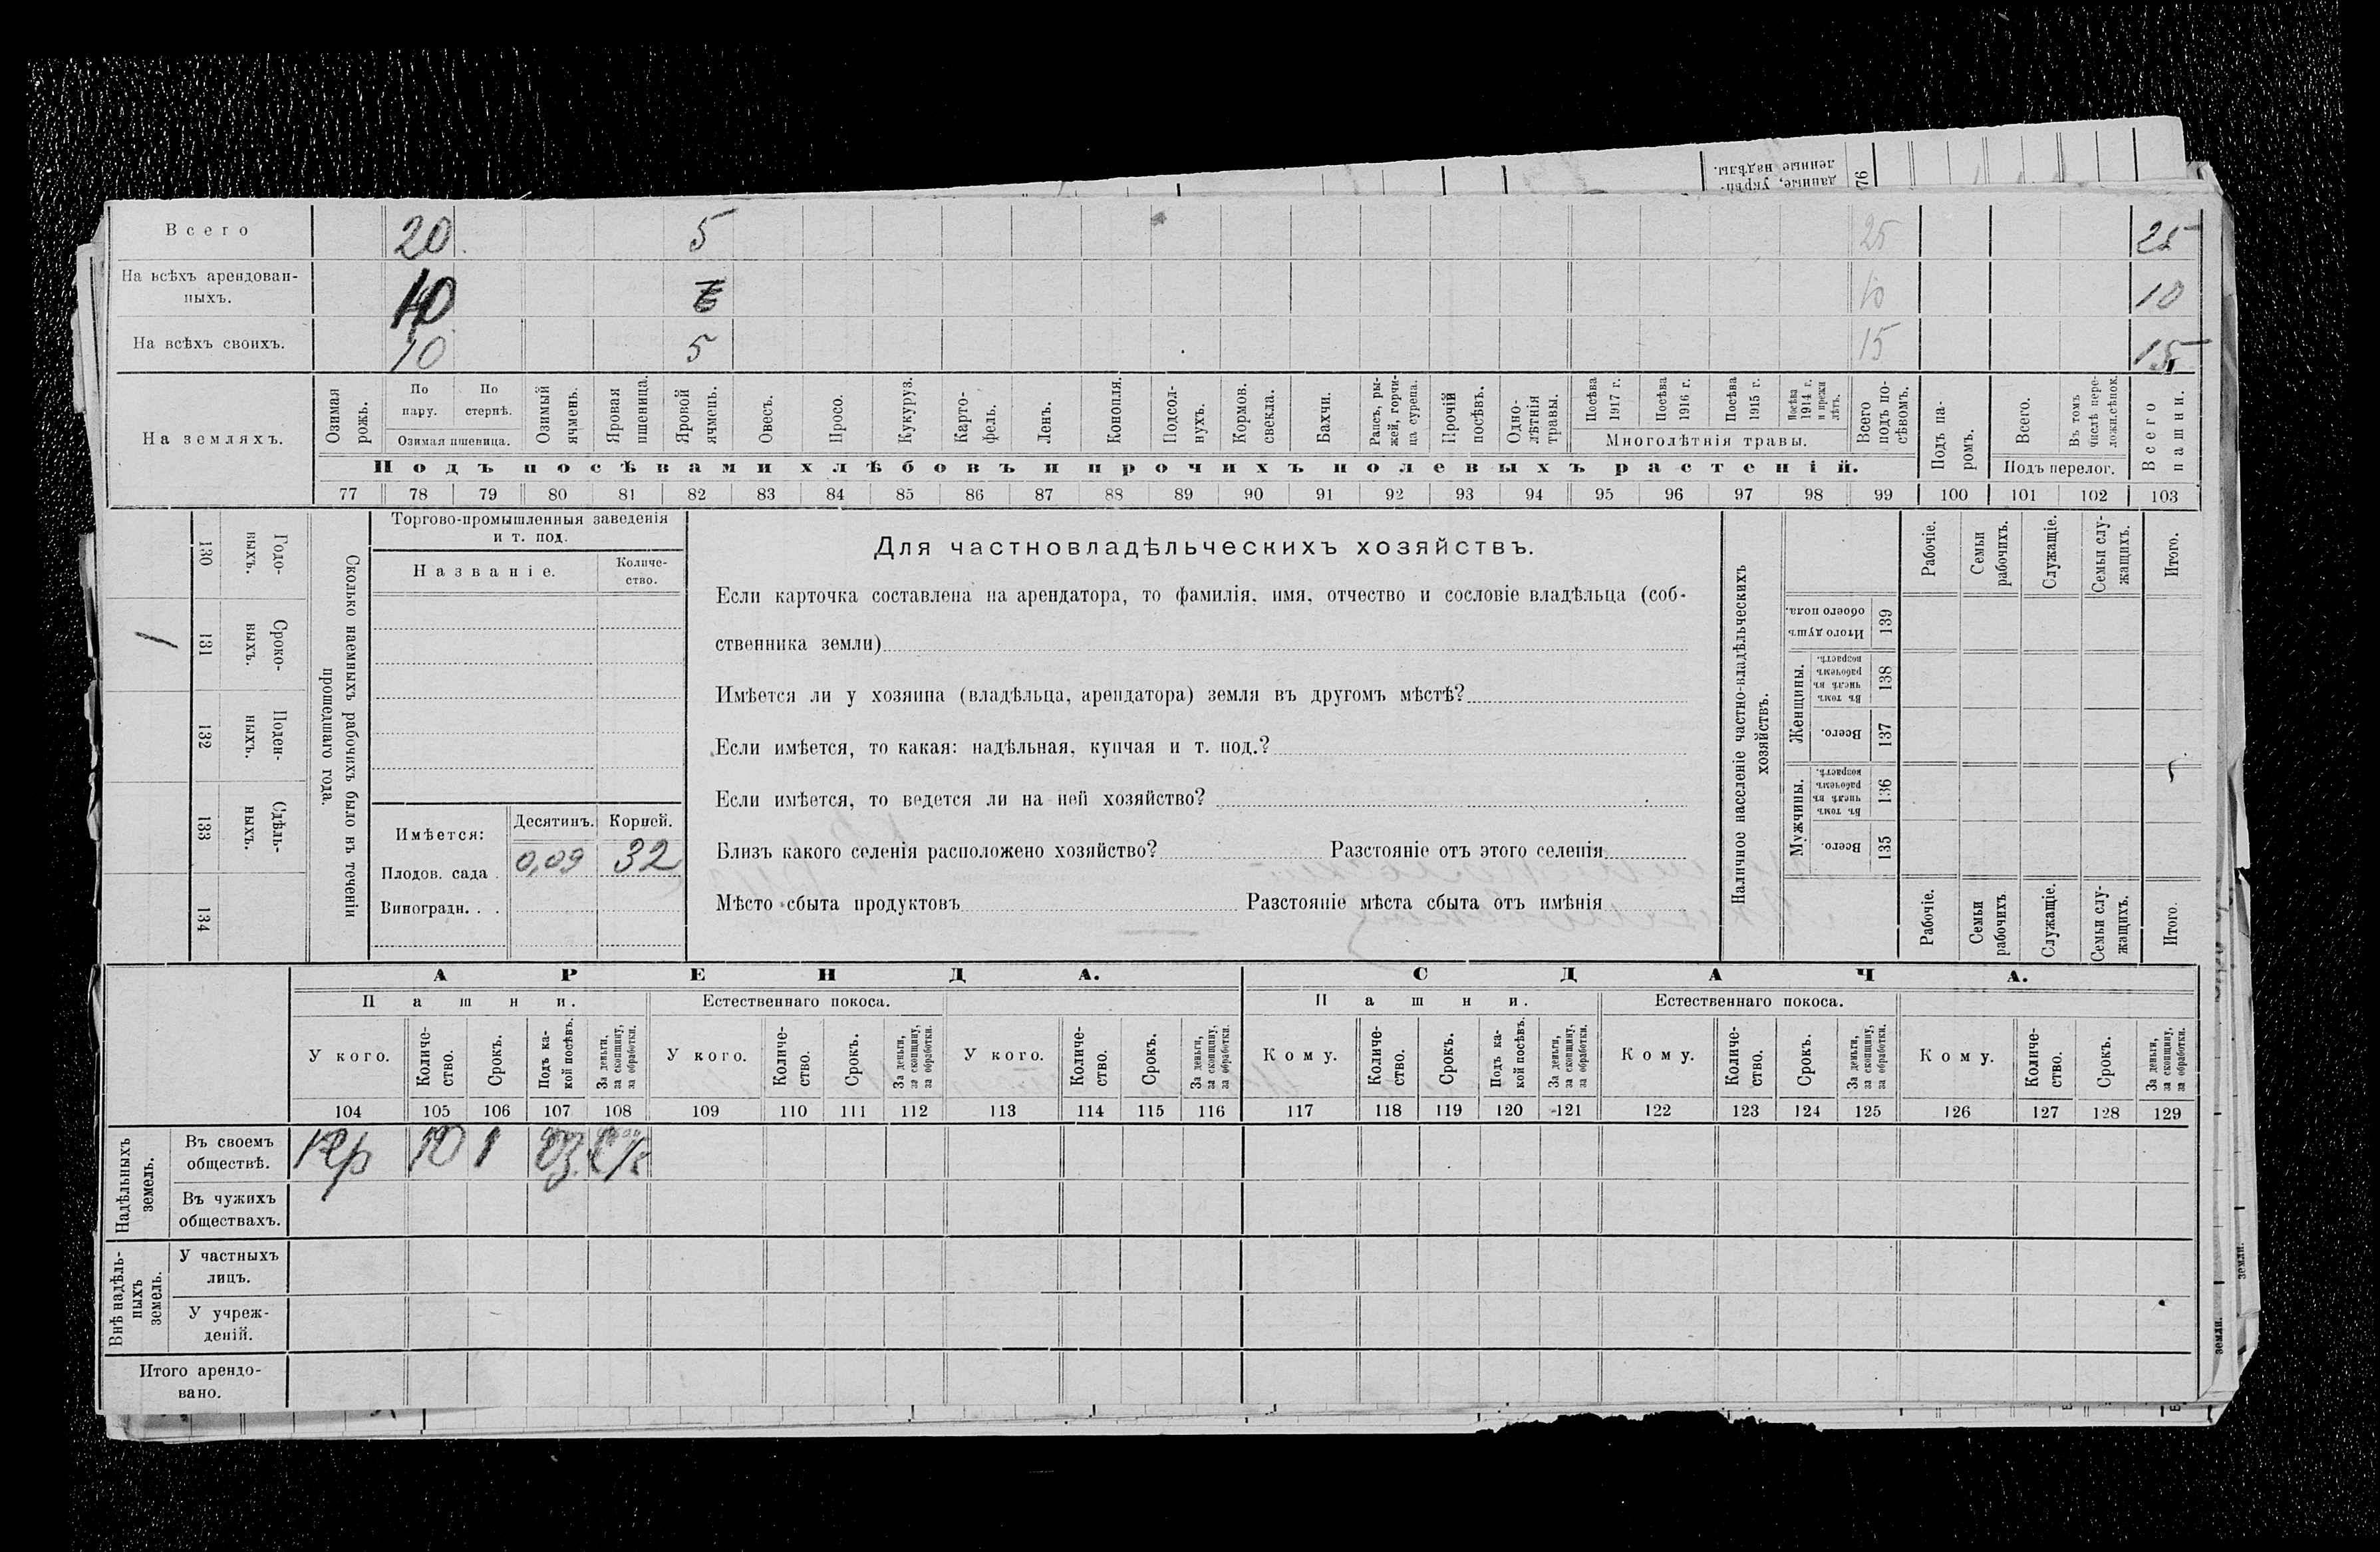 данные, укрѣп-
ленные надѣлы.
76
Всего 20 5 25 25
На всѣхъ арендован-
ныхъ. 10 10 10
На всѣхъ своихъ. 10 5 15 15
На земляхъ.
Озимая рожь.
По пару.
По стернѣ.
Озимая пшеница.
Озимый ячмень.
Яровая пшеница.
Яровой ячмень.
Овесъ.
Просо.
Кукуруз.
Карто-
фель.
Ленъ.
Конопля.
Подсол-
нухъ.
Кормов.
свекла.
Бахчи.
Рапсъ, ры-
жей, горчи-
ца сурепа.
Прочій
посѣвъ.
Одно-
лѣтнія
травы.
Посѣва
1917 г.
Посѣва
1916 г.
Посѣва
1915 г.
Посѣва
1914 г.
и прежн
лѣтъ.
Многолѣтнія травы.
Всего
подъ по-
сѣвомъ.
Подъ посѣвами хлѣбовъ и прочихъ полевыхъ растеній.
Подъ па-
ромъ.
Всего.
Въ томъ
числѣ пере-
ложн.сѣнок.
Подъ перелог.
Всего
пашни.
77 78 79 80 81 82 83 84 85 86 87 88 89 90 91 92 93 94 95 96 97 98 99 100 101 102 103
Сколько наемныхъ рабочихъ было въ теченіи
прошедшаго года.
Годо-
выхъ.
130
Сроко-
выхъ.
131
1
Поден-
ныхъ.
132
Сдѣль-
ныхъ.
133
134
Торгово-промышленныя заведенія
и т. под.
Названіе.
Количе-
ство.
Имѣется: Десятинъ. Корней.
Плодов. сада . 0,09 32
Виноградн. . .
Для частновладѣльческихъ хозяйствъ.
Если карточка составлена на арендатора, то фамилія, имя, отчество и сословіе владѣльца (соб-
ственника земли)
Имѣется ли у хозяина (владѣльца, арендатора) земля въ другомъ мѣстѣ?
Если имѣется, то какая: надѣльная, купчая и т. под.?
Если имѣется, то ведется ли на ней хозяйство?
Близъ какого селенія расположено хозяйство? Разстояніе отъ этого селенія
Мѣсто сбыта продуктовъ Разстояніе мѣста сбыта отъ имѣнія
Наличное населеніе частно-владѣльческихъ
хозяйствъ.
Рабочіе.
Семьи
рабочихъ.
Служащіе.
Семьи слу-
жащихъ.
Итого.
Итого душъ
обоего пола.
139
Женщины.
Въ томъ
числѣ въ
рабочемъ
возрастѣ.
138
Всего.
137
Мужчины.
Въ томъ
числѣ въ
рабочемъ
возрастѣ.
136
Всего.
135
Рабочіе.
Семьи
рабочихъ
Служащіе.
Семьи слу-
жащихъ.
Итого.
АРЕНДА. СДАЧА.
Пашни. Естественнаго покоса. Пашни. Естественнаго покоса.
У кого.
Количе-
ство.
Срокъ.
Подъ ка-
кой посѣвъ.
За деньги,
за скопщину,
за обработки.
У кого.
Количе-
ство.
Срокъ.
За деньги,
за скопщину,
за обработки.
У кого.
Количе-
ство.
Срокъ.
За деньги,
за скопщину,
за обработки.
Кому.
Количе-
ство.
Срокъ.
Подъ ка-
кой посѣвъ.
За деньги,
за скопщину,
за обработки.
Кому.
Количе-
ство.
Срокъ.
За деньги,
за скопщину,
за обработки.
Кому.
Количе-
ство.
Срокъ.
За деньги,
за скопщину,
за обработки.
104 105 106 107 108 109 110 111 112 113 114 115 116 117 118 119 120 121 122 123 124 125 126 127 128 129
Надѣльныхъ
земель.
Въ своемъ
обществѣ. Кр 10 1 Оз.
Въ чужихъ
обществахъ.
Внѣ надѣль-
ныхъ
земель.
У частныхъ
лицъ.
У учреж-
деній.
Итого арендо-
вано.
земли.
земли.